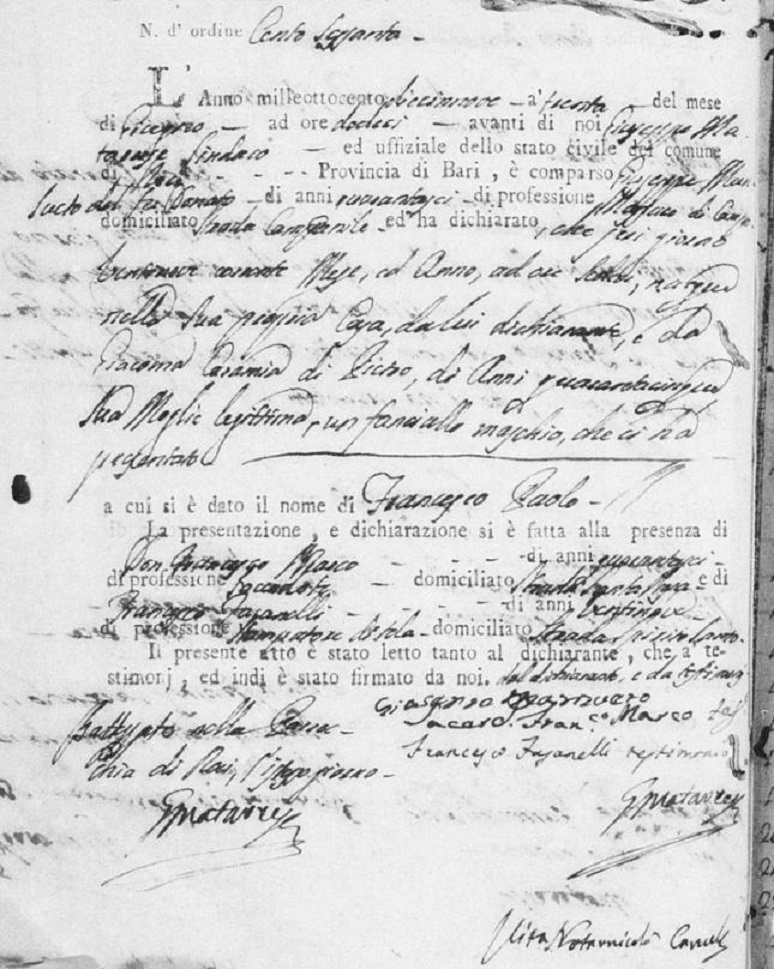 N. d' ordine Cento Sessanta -
L' Anno milleottocento diecinnove - a' trenta - del mese
di - ad ore dodeci - avanti di noi Giuseppe Ma-
tarrese Sindaco - ed uffiziale dello stato civile del comune
di - - - - Provincia di Bari , è comparso Giuseppe Man-
di anni quarantasei - di professione
domiciliato Strada Campanile - ed ha dichiarato , che jeri giorno
ventinove corrente Mese, ed Anno, ad ore , nacque
nella sua propria Casa, da lui dichiarante, e da
Giacoma di Pietro, di Anni quarantacinque
Sua Moglie legittima, un fanciullo maschio, che ci ha
presentato
a cui si è dato il nome di Francesco Paolo -
La presentazione , e dichiarazione si è fatta alla presenza di
Don Francesco Marco - - - - di anni quarantasei -
di professione Sacerdote - domiciliato Strada Santa e di
Francesco Fasanelli - - - - - - di anni ventinove -
di professione - domiciliato Strada Spirito Santo -
Il presente atto è stato letto tanto al dichiarante , che a' te-
stimonj , ed indi è stato firmato da noi, dal dichiarante, e da testimonj
Battezzato nella Parroc-
chia di , l'istesso giorno -
Sacerd. Franc.o Marco
Francesco Fasanelli testimonio
G Matarrese
G Matarrese
Vita Notarnicola